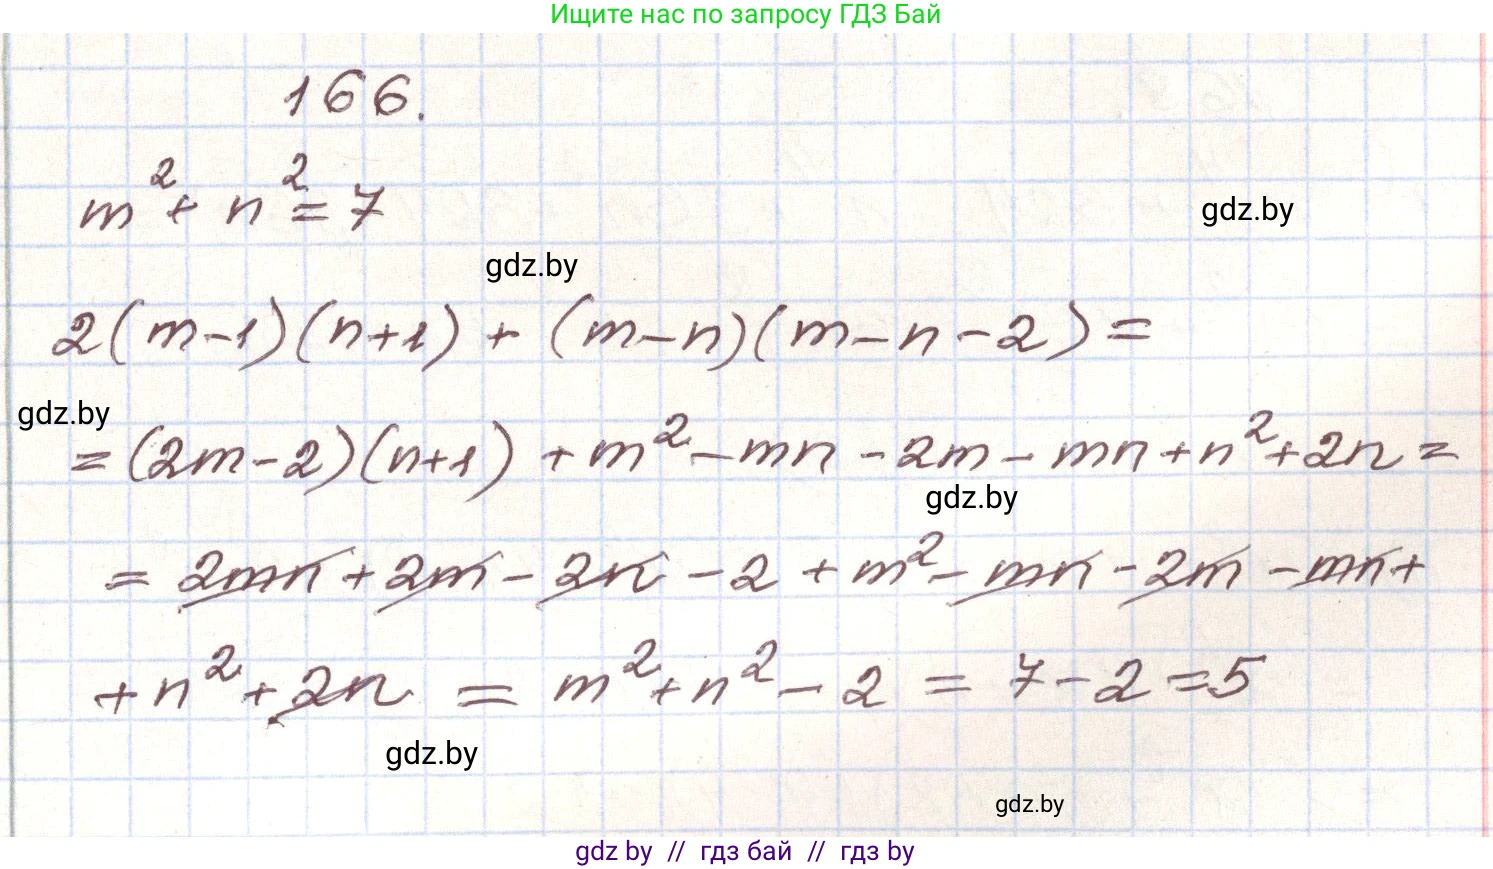 Ищите нас по запросу ГДЗ Бай
166.
m² + n² = 7
gdz.by
gdz.by
2(m-1)(n+1) + (m-n)(m-n-2) =
gdz.by
= (2m-2)(n+1) + m² - mn - 2m - mn + n² + 2n =
gdz.by
= 2mn + 2m - 2n - 2 + m² - mn - 2m - mn +
+ n² + 2n = m² + n² - 2 = 7 - 2 = 5
gdz.by
gdz.by
gdz by // гдз бай // гдз by